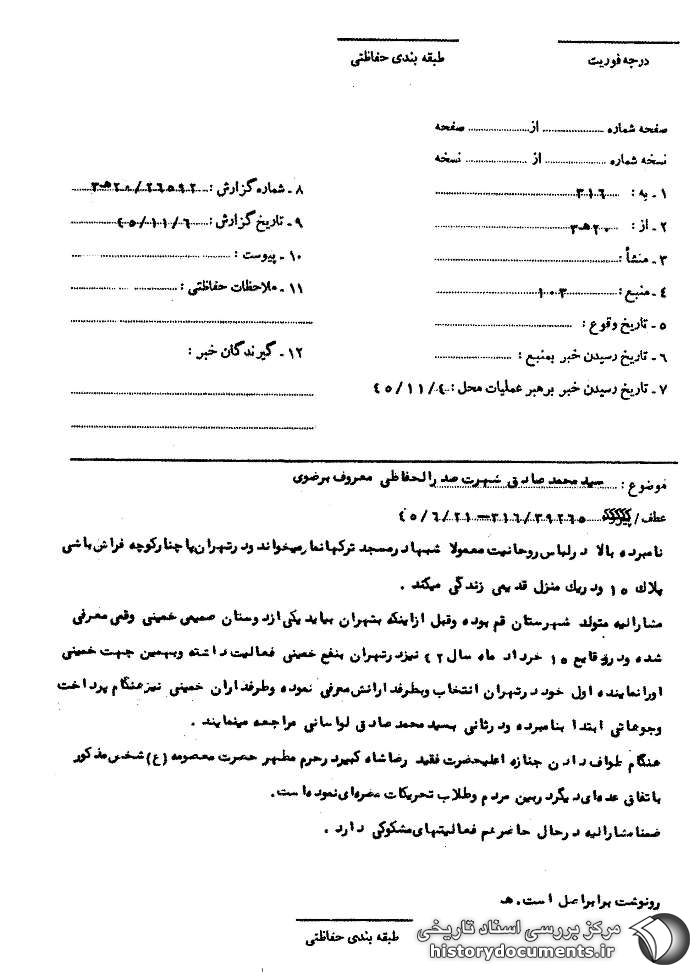 درجه فوریت
طبقه بندی حفاظتی
صفحه شماره .......... از .......... صفحه
نسخه شماره .......... از .......... نسخه
۱ ـ به : ۳۱۶
۲ ـ از : ۲۰ هـ ۳
۳ ـ منشأ :
۴ ـ منبع : ۱۰۰۳
۵ ـ تاریخ وقوع :
۶ ـ تاریخ رسیدن خبر بمنبع :
۷ ـ تاریخ رسیدن خبر برهبر عملیات محل : ۴۵/۱۱/۴
۸ ـ شماره گزارش : ۲۶۵۹۲/۲۰ هـ ۳
۹ ـ تاریخ گزارش : ۴۵/۱۱/۶
۱۰ ـ پیوست :
۱۱ ـ ملاحظات حفاظتی :
۱۲ ـ گیرندگان خبر :
موضوع : سید محمد صادق شهرت صدرالحفاظی معروف برضوی
عطف / ۳۱۶/۳۹۲۶۵ – ۴۵/۶/۲۱
نامبرده بالا در لباس روحانیت معمولا شبها در مسجد ترکها نماز میخواند و در تهران پاچنار کوچه فراش باشی
پلاک ۱۵ و در یک منزل قدیمی زندگی میکند .
مشارالیه متولد شهرستان قم بوده و قبل از اینکه بتهران بیاید یکی از دوستان صمیمی خمینی وقمی معرفی
شده و در وقایع ۱۵ خرداد ماه سال ۴۲ نیز در تهران بنفع خمینی فعالیت داشته و بهمین جهت خمینی
او را نماینده اول خود در تهران انتخاب و بطرفدارانش معرفی نموده و طرفداران خمینی نیز هنگام پرداخت
وجوهاتی ابتدا بنامبرده و در ثانی بسید محمد صادق لواسانی مراجعه مینمایند .
هنگام طواف دادن جنازه اعلیحضرت فقید رضا شاه کبیر در حرم مطهر حضرت معصومه (ع) شخص مذکور
باتفاق عده‌ای دیگر در بین مردم و طلاب تحریکات مضره‌ای نموده است.
ضمنا مشارالیه در حال حاضر هم فعالیتهای مشکوکی دارد .
رونوشت برابر اصل است. هـ
طبقه بندی حفاظتی
مرکز بررسی اسناد تاریخی
historydocuments.ir